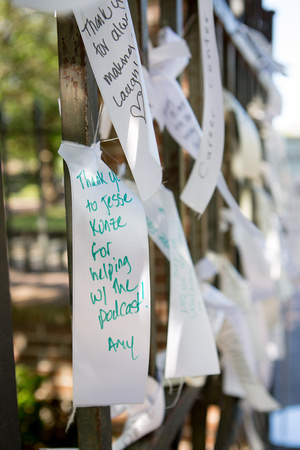 Thank you
for always
making me
laugh! ♡
Thank you
to Jesse
Kunze
for
helping
w/ the
podcast!
Amy